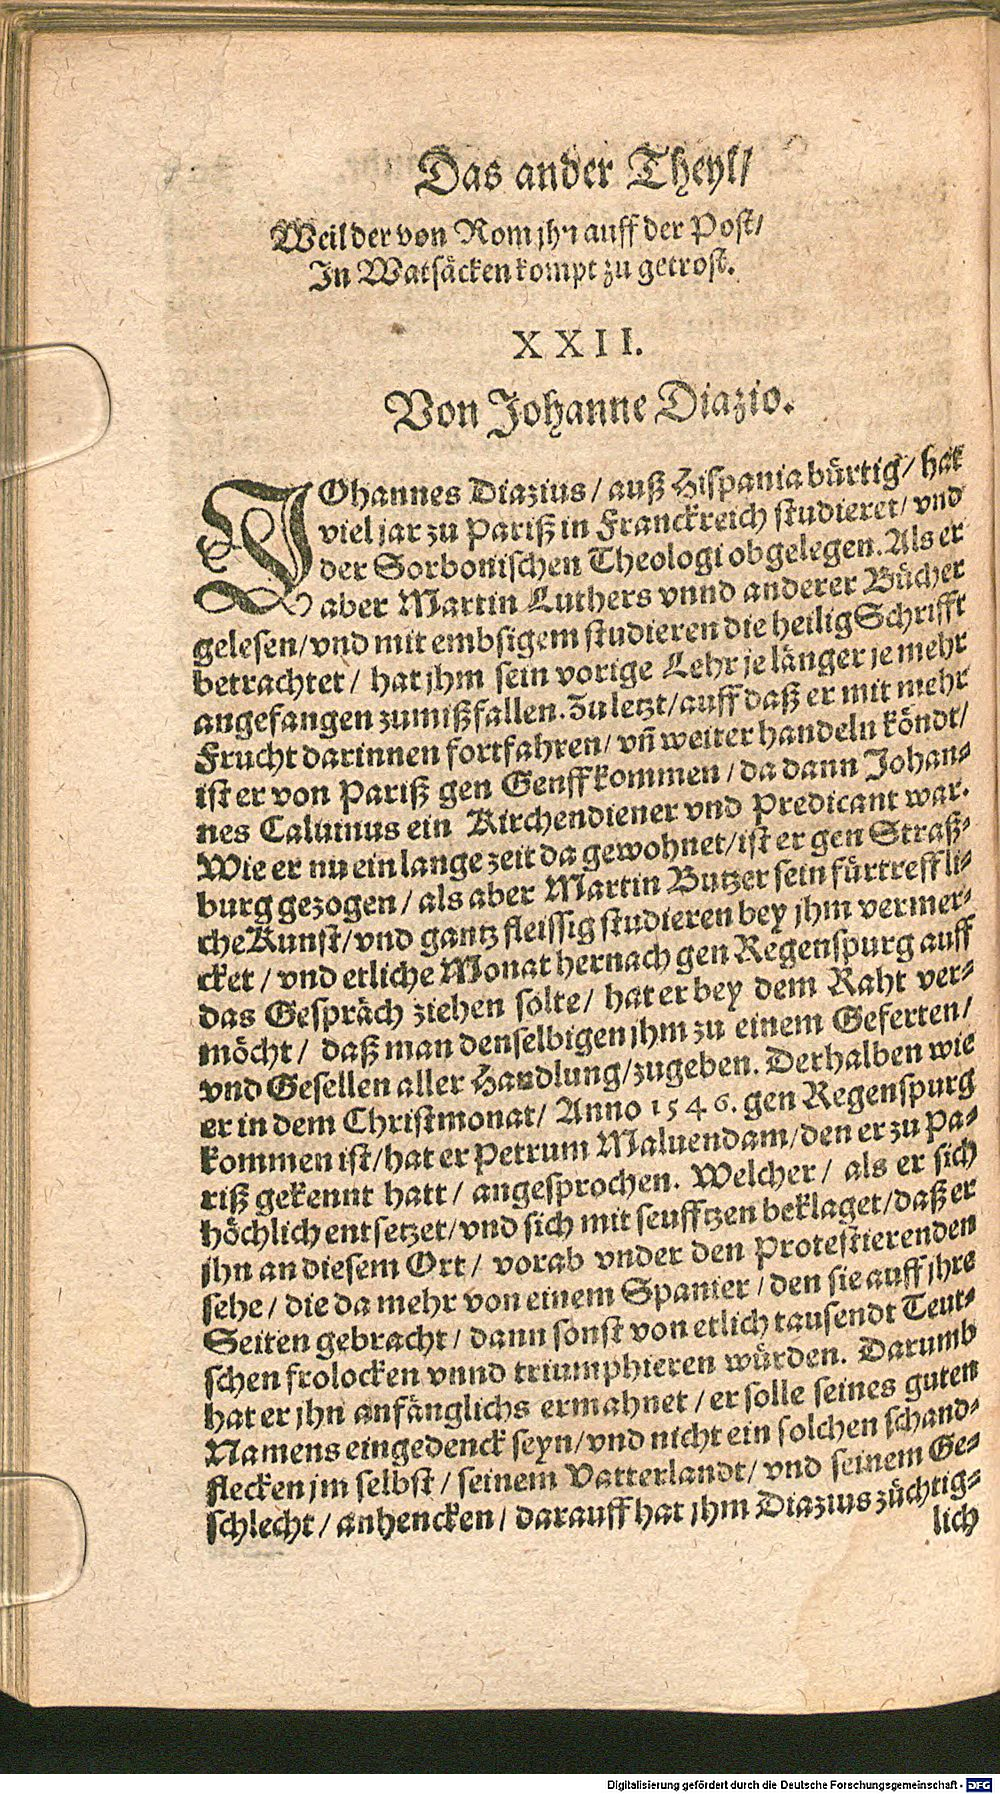 Das ander Theyl/
Weil der von Rom jhn auff der Post/
In Watsäcken kompt zu getrost.
XXII.
Von Johanne Diazio.
JOhannes Diazius / auß Hispania bürtig / hat
viel jar zu Pariß in Franckreich studieret / vnd
der Sorbonischen Theologi obgelegen. Als er
aber Martin Luthers vnnd anderer Bücher
gelesen / vnd mit embsigem studieren die heilig Schrifft
betrachtet / hat jhm sein vorige Lehr je länger je mehr
angefangen zumißfallen. Zu letzt / auff daß er mit mehr
Frucht darinnen fortfahren / vñ weiter handeln köndt /
ist er von Pariß gen Genff kommen / da dann Johan-
nes Caluinus ein Kirchendiener vnd Predicant war.
Wie er nu ein lange zeit da gewohnet / ist er gen Straß-
burg gezogen / als aber Martin Butzer sein fürtreffli-
che Kunst / vnd gantz fleissig studieren bey jhm vermer-
cket / vnd etliche Monat hernach gen Regenspurg auff
das Gespräch ziehen solte / hat er bey dem Raht ver-
möcht / daß man denselbigen jhm zu einem Geferten /
vnd Gesellen aller Handlung / zugeben. Derhalben wie
er in dem Christmonat / Anno 1546. gen Regenspurg
kommen ist / hat er Petrum Maluendam / den er zu Pa-
riß gekennt hatt / angesprochen. Welcher / als er sich
höchlich entsetzet / vnd sich mit seufftzen beklaget / daß er
jhn an diesem Ort / vorab vnder den Protestierenden
sehe / die da mehr von einem Spanier / den sie auff jhre
Seiten gebracht / dann sonst von etlich tausendt Teut-
schen frolocken vnnd triumphieren würden. Darumb
hat er jhn anfänglichs ermahnet / er solle seines guten
Namens eingedenck seyn / vnd nicht ein solchen schand-
flecken jm selbst / seinem Vatterlandt / vnd seinem Ge-
schlecht / anhencken / darauff hat jhm Diazius züchtig-
lich
Digitalisierung gefördert durch die Deutsche Forschungsgemeinschaft - DFG